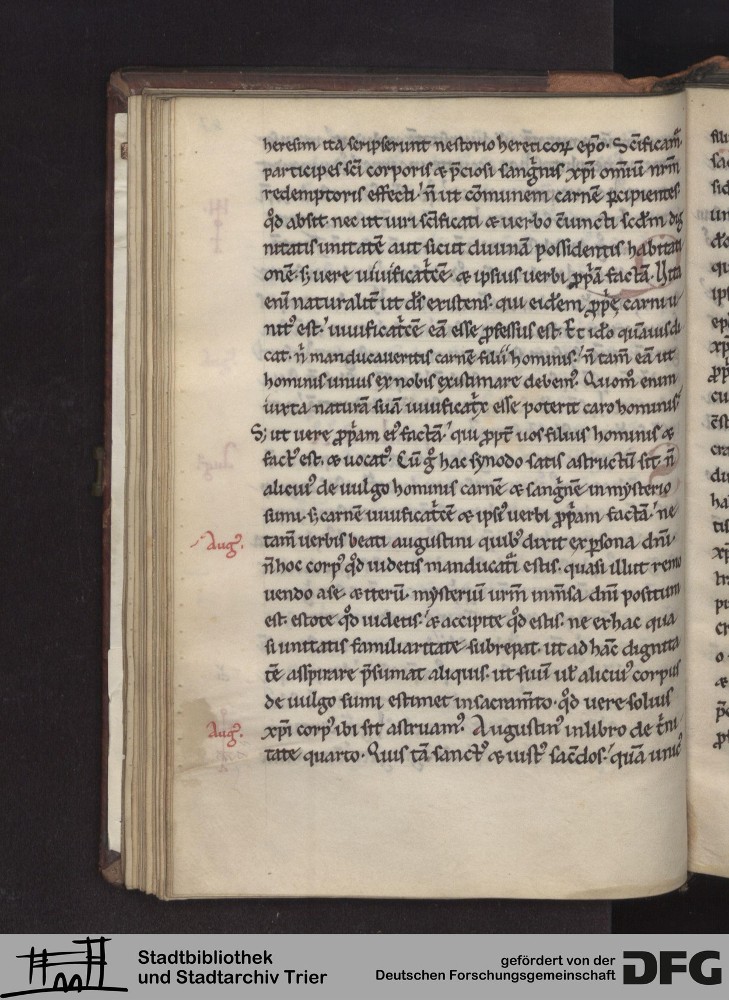 heresim ita scripserunt nestorio hereticoꝝ ep̄o· Sc̄ificam᷒
participes sc̄i corporis & p̄ciosi sanguinis xp̄i omīū nr̄m
redemptoris effecti· n̄ ut cōmunem carnē ꝑcipientes
qd̄ absit nec ut uiri sc̄ificati & uerbo c̄iuncti scd̄m dig
nitatis unitatē aut sicut diuinā possidentis habitati
onē· sꝫ uere uiuificatͥcē & ipsius uerbi ꝓpͥā factā· Uita
enī naturalit̄ ut ds̄ existens· qui eidem ꝓpͥę carni u
nit᷒ est· uiuificatͥcē eā esse ꝓfessus est· Et ido quāuis di
cat· nͥ manducaueritis carnē filii hominis· n̄ tam̄ eā ut
hominis unius ex nobis existimare debem᷒· Quom̊ enim
iuxta naturā suā uiuificatͥx esse poterit caro hominis
Sꝫ ut uere ꝓpͥam ei᷒ factā· qui ꝓpt̄ uos filius hominis &
fact᷒ est· & uocat᷒· Cū g̊ hac synodo satis astructū sit· n̄
alicui᷒ de uulgo hominis carnē & sangͥnē in mysterio
sumi· sꝫ carnē uiuificatͥcē & ipsi᷒ uerbi ꝓpͥam factā· ne
Aug᷒·
tam̄ uerbis beati augustini quib᷒ dixit ex ꝑsona dn̄i
n̄ hoc corp᷒ qd̄ uidetis manducatͥi estis· quasi illut remo
uendo a se· & iterū· mysteriū urm̄ in mīsa dn̄i positum
est· estote qd̄ uidetis· & accipite qd̄ estis· ne ex hac qua
si unitatis familiaritate subrepat· ut ad hāc dignita
tē asspirare p̄sumat aliquis· ut suū ul̄ alicui᷒ corpus
de uulgo sumi estimet in sacram̄to· qd̄ uere solius
Aug᷒·
xp̄i corp᷒ ibi sit astruam᷒· Augustin᷒ in libro de tͥni
tate quarto· Quis tā sanct᷒ & iust᷒ sac̄dos· quā unic᷒
Stadtbibliothek
und Stadtarchiv Trier
gefördert von der
Deutschen Forschungsgemeinschaft
DFG